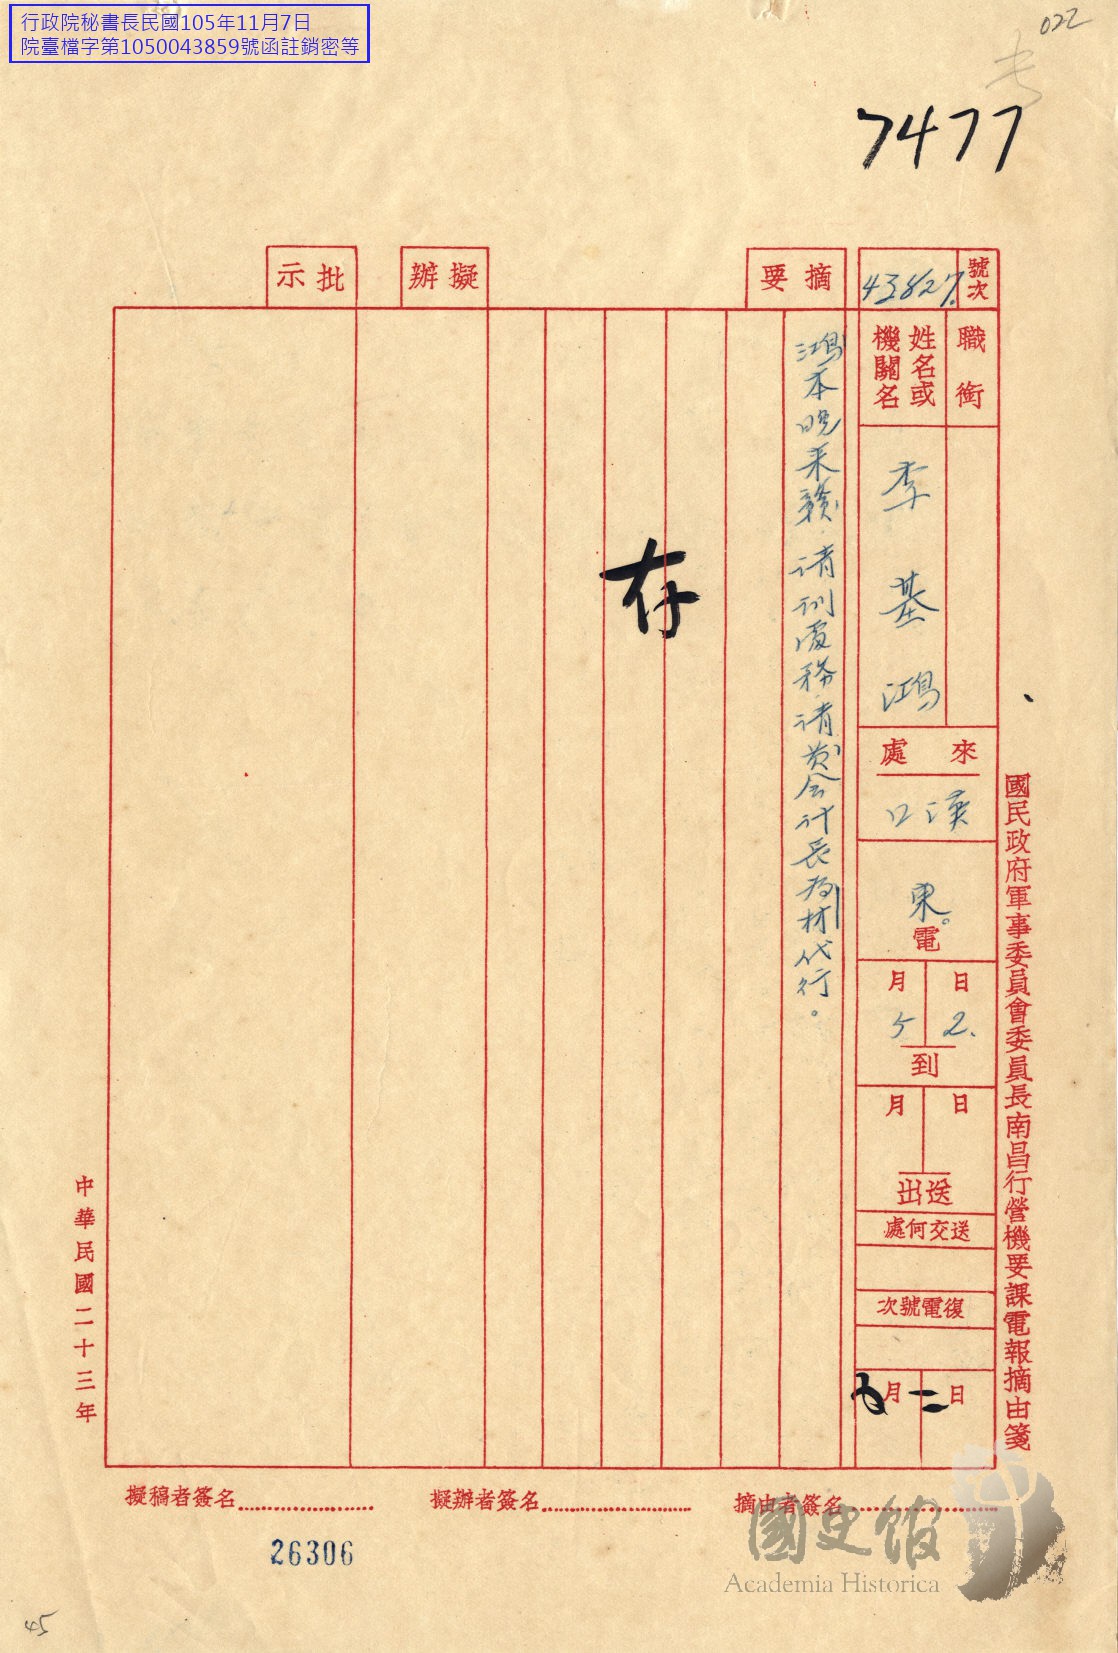 行政院秘書長民國105年11月7日
院臺檔字第1050043859號函註銷密等
022
7477
國民政府軍事委員會委員長南昌行營機要課電報摘由箋
號次
43827.
職銜
姓名或機關名
李基鴻
來處
漢口
東。電
2.日
5月
到
日
月
送出
送交何處
復電號次
二日
五月
摘要
鴻本晚來贛.請刊處務.請黃会计長為材代行。
存
擬辦
批示
中華民國二十三年
摘由者簽名
擬辦者簽名
擬稿者簽名
26306
45
國史館
Academia Historica